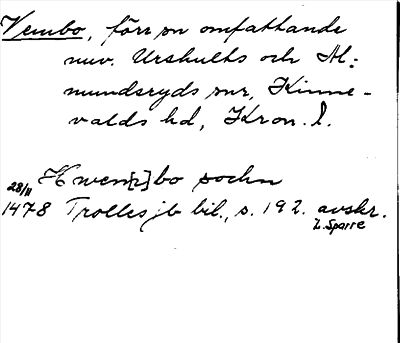 Vembo, förr sn omfattande
nuv. Urshults och Al-
mundsryds snr, Kinne-
valds hd, Kron. l.
Hwen[z]bo sochn
28/11
1478 Trolles jb bil., s. 192. avskr.
L. Sparre